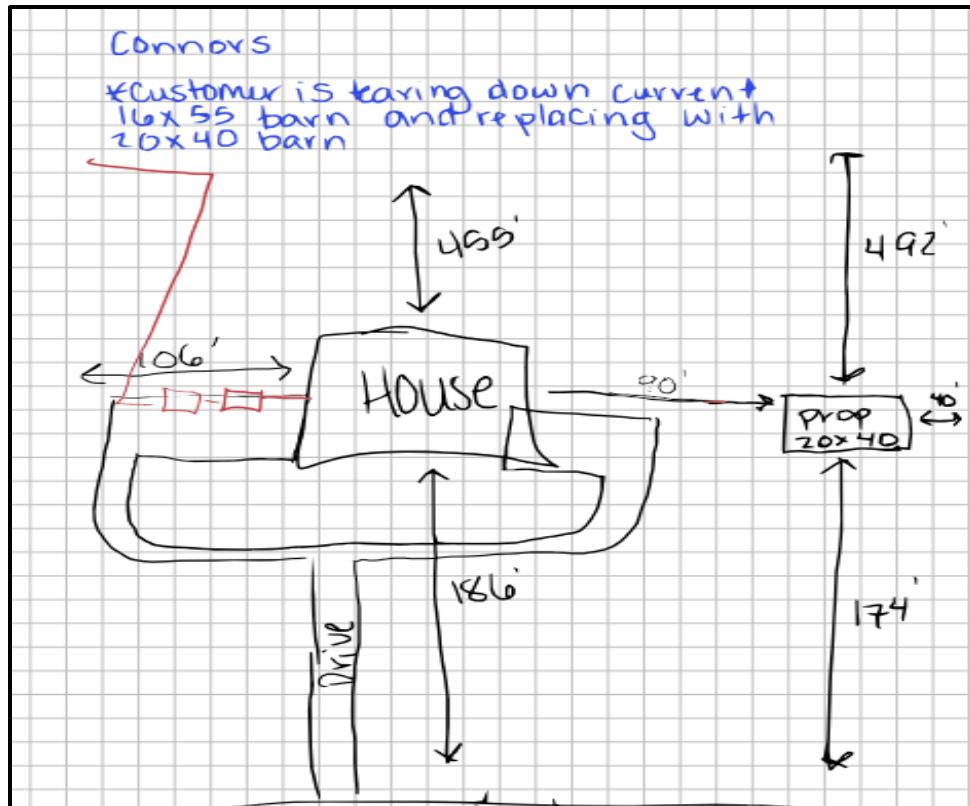 Connors
*Customer is taring down current
16x55 barn and replacing with
20x40 barn
455'
492'
106'
House
90'
prop
20x40
40'
186'
174'
Drive